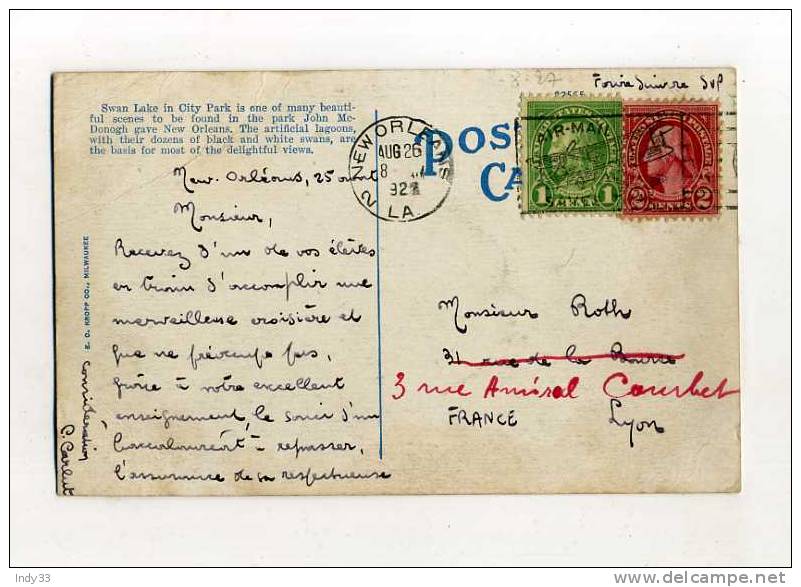 Swan Lake in City Park is one of many beauti-
ful scenes to be found in the park John Mc-
Donogh gave New Orleans. The artificial lagoons,
with their dozens of black and white swans, are
the basis for most of the delightful views.
New. Orléans, 25 août
Monsieur,
Recevez d'un de vos élèves
en train d'accomplir une
merveilleuse croisière et
que ne préoccupe pas,
grâce à votre excellent
enseignement, le souci d'un
baccalauréat à repasser,
l'assurance de sa respectueuse
considération
C. Carlut
E. C. KROPP CO., MILWAUKEE
NEW ORLEANS
AUG 26
8
192
LA.
2
POST
CA
AIR-MAIL
1 1
2 2
CENTS
Faire Suivre SVP
Monsieur Roth
31 rue de la Bourse
3 rue Amiral Courbet
FRANCE Lyon
Indy33
www.delcampe.net